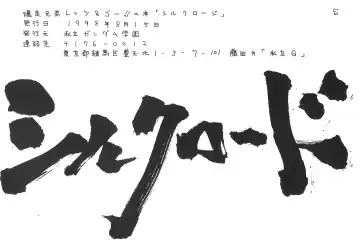 爆走兄弟レッツ&ゴー!!の本「シルクロード」
発行日 1998年8月15日
発行元 私立ガンダム学園
連絡先 〒176-0012
東京都練馬区豊玉北1-5-7-101 藤田方「私立G」
シルクロード